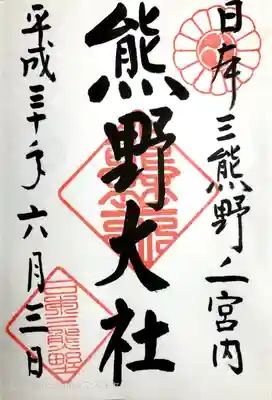 日本三熊野之宮内
熊野大社
平成三十年六月三日
日本三熊野